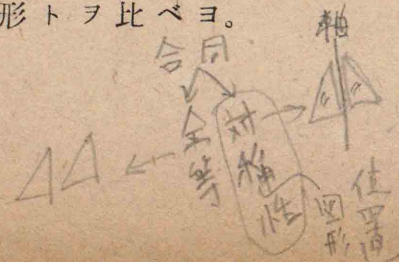 形トヲ比ベヨ。
軸
合同
全等
対称性
図形
位置